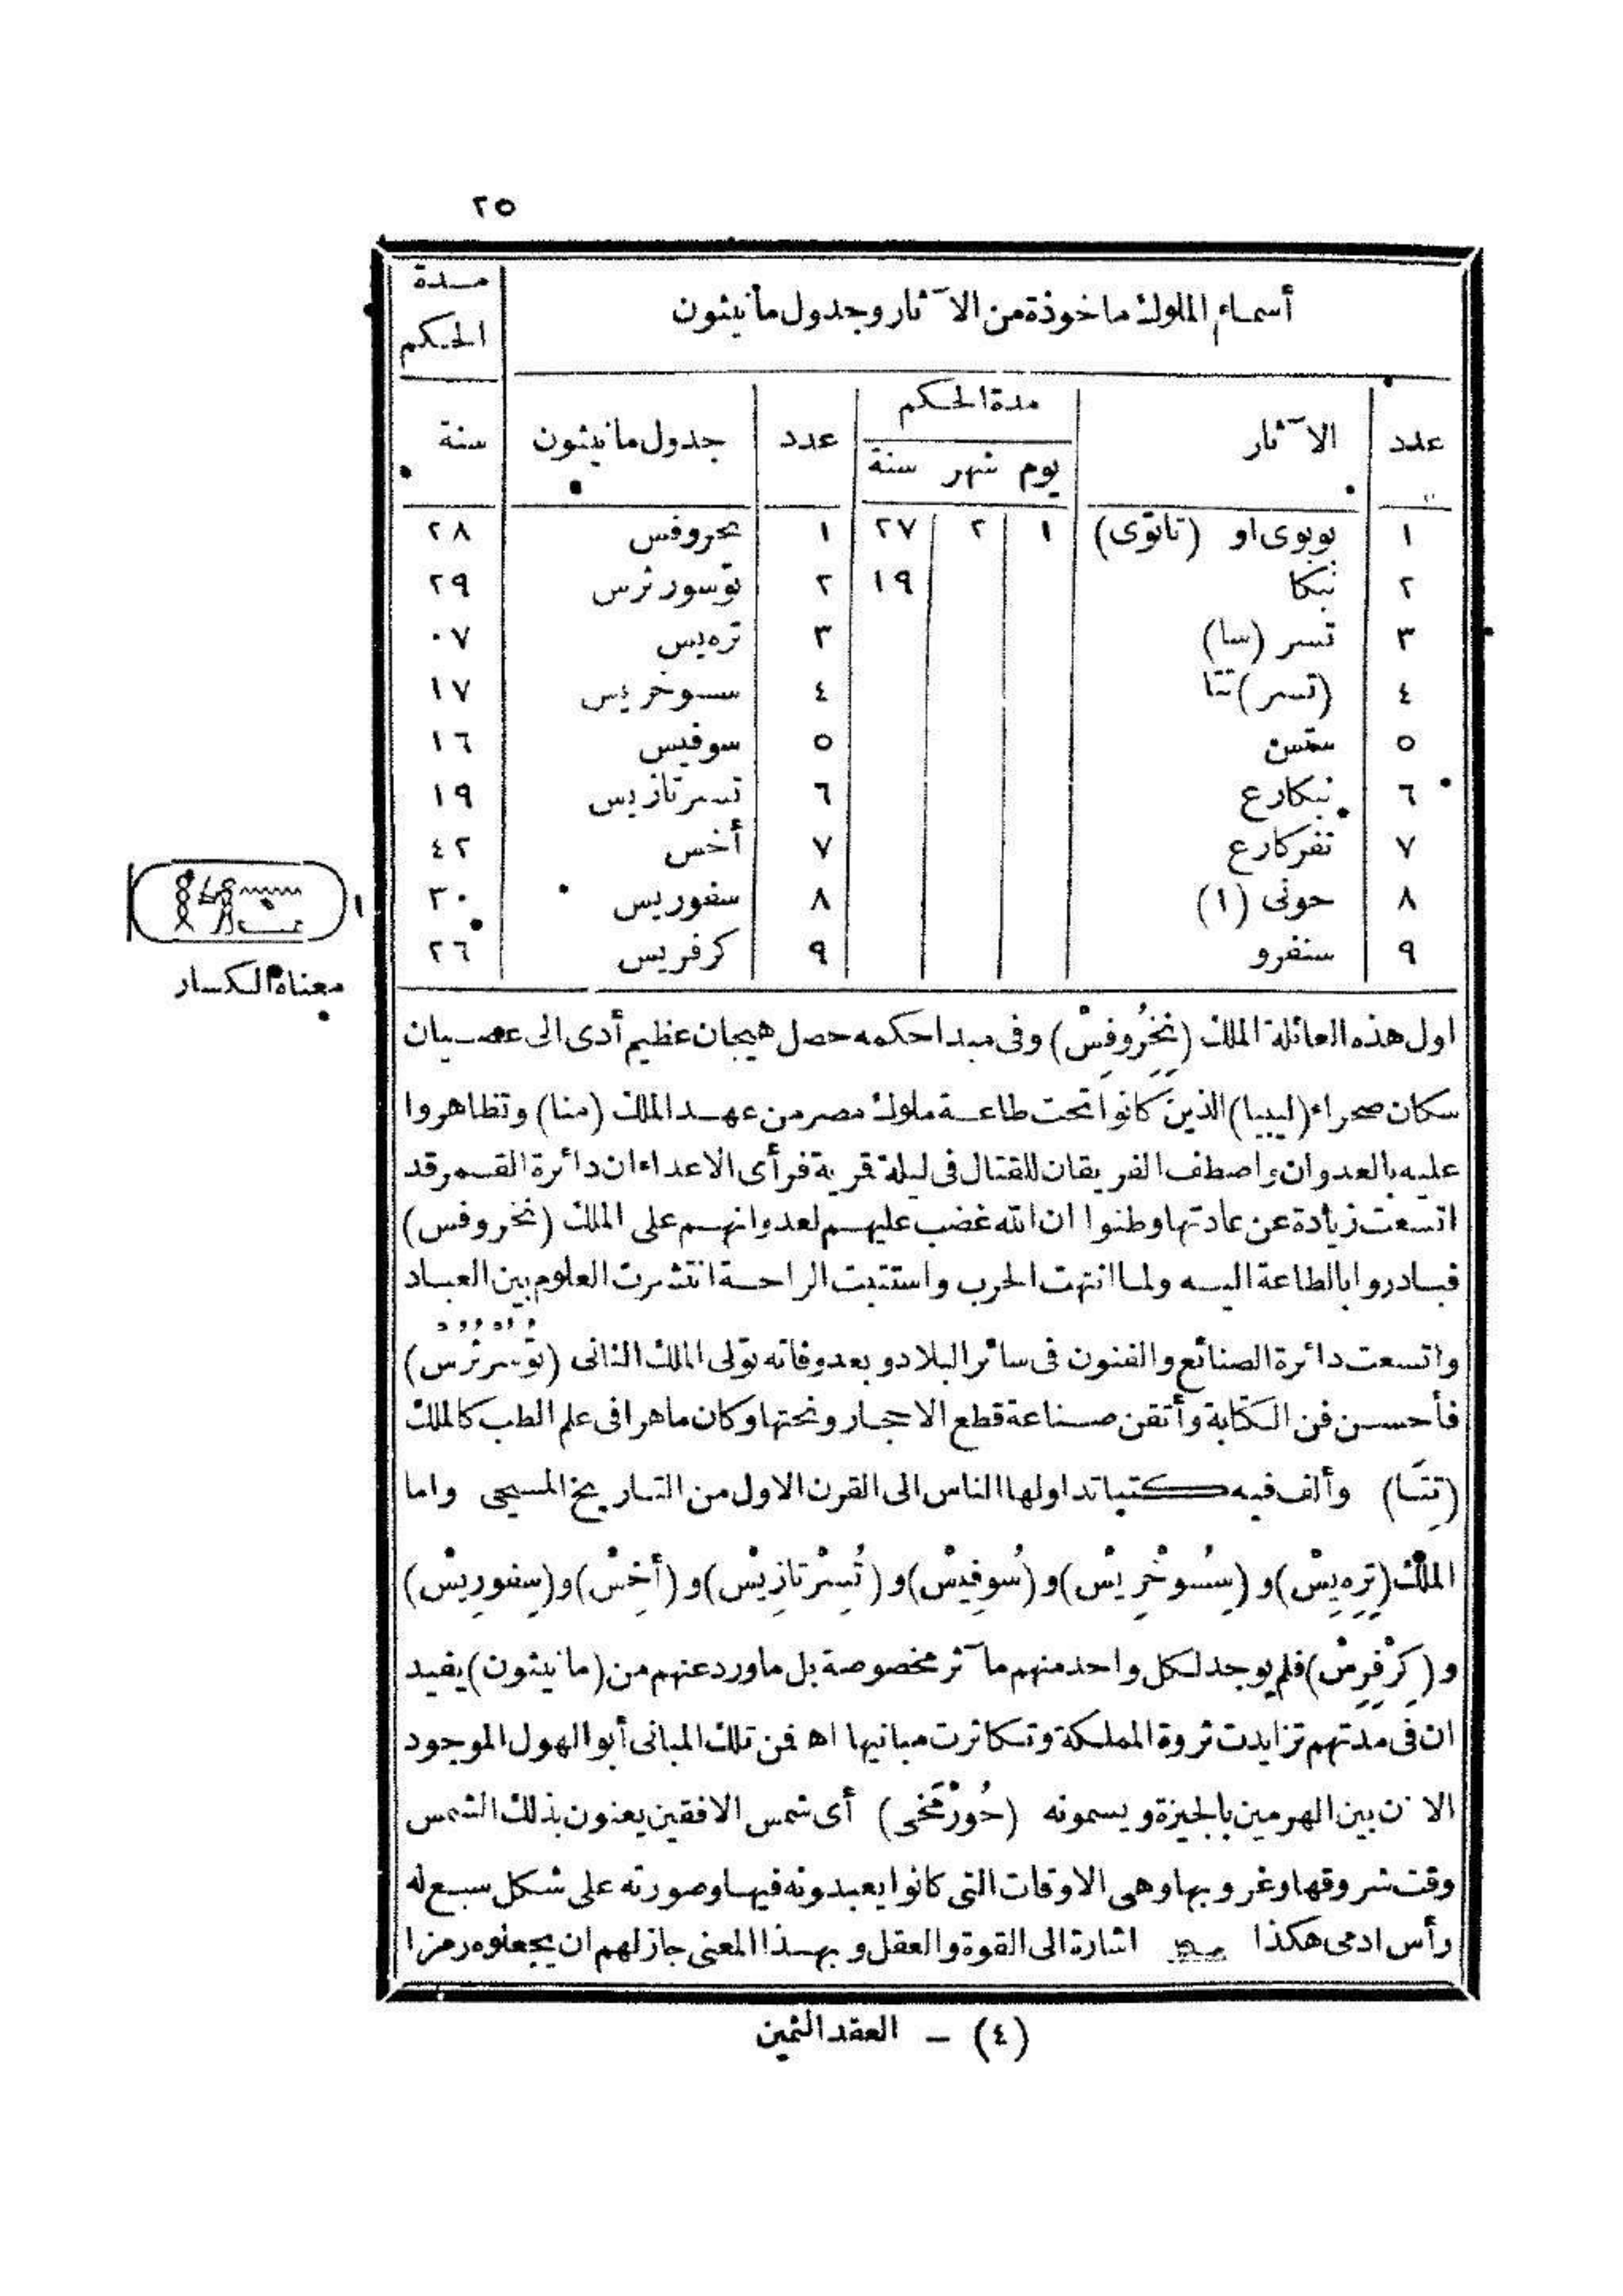 ٢٥
أسماء الملوك ماخوذة من الآثار وجدول مانيثون
مدة
الحكم
عدد الآثار مدة الحكم عدد جدول مانيثون سنة
يوم شهر سنة
١ بوبوى او (تاتوى) ١ ٢ ٢٧ ١ نخروفس ٢٨
٢ نبكا ١٩ ٢ توسورثرس ٢٩
٣ تسر (سا) ٣ ترهيس ٠٧
٤ (تسر) تتا ٤ سسوخريس ١٧
٥ ستس ٥ سوفيس ١٦
٦ نبكارع ٦ تسرتازيس ١٩
٧ نفركارع ٧ أخس ٤٢
٨ حونى (١) ٨ سفوريس ٣٠
٩ سنفرو ٩ كرفريس ٢٦
١
معناه الكسار
اول هذه العائلة الملك (نِخِرُوفِسْ) وفى مبدا حكمه حصل هيجان عظيم أدى الى عصيان
سكان صحراء (ليبيا) الذين كانوا تحت طاعة ملوك مصر من عهد الملك (منا) وتظاهروا
عليه بالعدوان واصطف الفريقان للقتال فى ليلة قرية فرأى الاعداء ان دائرة القمر قد
اتسعت زيادة عن عادتها وظنوا ان الله غضب عليهم لعدوانهم على الملك (نخروفس)
فبادروا بالطاعة اليه ولما انتهت الحرب واستتبت الراحة انتشرت العلوم بين العباد
واتسعت دائرة الصنائع والفنون فى سائر البلاد و بعد وفاته تولى الملك الثانى (توسرثرس)
فأحسن فن الكتابة وأتقن صناعة قطع الاحجار ونحتها وكان ماهرا فى علم الطب كالملك
(تِتَا) وألف فيه كتبا تداولها الناس الى القرن الاول من التاريخ المسيحى واما
الملك (تِرِهِيِسْ) و (سِسُوخْرِيسْ) و (سُوفِيِسْ) و (تُسِرْتَازِيسْ) و (أخِسْ) و (سِفوريِسْ)
و (كِرْفِرِسْ) فلم يوجد لكل واحد منهم مآثر مخصوصة بل ما ورد عنهم من (مانيثون) يفيد
ان فى مدتهم تزايدت ثروة المملكة وتكاثرت مبانيها اه فمن تلك المبانى أبوالهول الموجود
الآن بين الهرمين بالجيزة ويسمونه (حُورْمَخى) أى شمس الافقين يعنون بذلك الشمس
وقت شروقها وغروبها وهى الاوقات التى كانوا يعبدونه فيها وصورته على شكل سبع له
رأس ادمى هكذا اشارة الى القوة والعقل و بهذا المعنى جاز لهم ان يجعلوه رمزا
(٤) – العقد الثمين